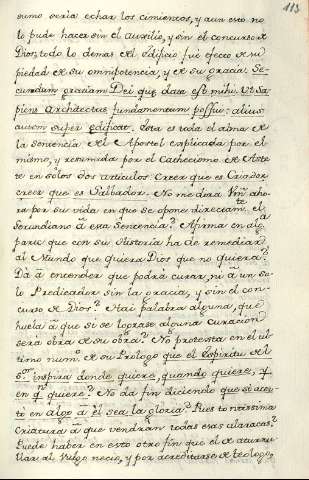 113
sumo seria echar los cimientos, y aun esto no
lo pude hacer sin el auxilio, y sin el concurso de
Dios, todo lo demas del edificio fué efecto de su
piedad de su omnipotencia, y de su gracia. Se-
cundum gratiam Dei quæ data est mihi. Vt Sa-
piens Architectus fundamentum possui: alius
autem super edificat. Esta es toda el alma de
la sentencia del Apostol explicada por el
mismo, y resumida por el Cathecismo de Aste-
te en solos dos articulos. Creer que es Criador
creer que es Salbador. No me dira Vm aho-
ra por su vida en que se opone directamte. el
Gerundiano á esta Sentencia? Afirma en alga.
parte que con su Historia ha de remediar
al Mundo que quiera Dios que no quiera?
Dá á entender que podrá curar, ni á un so-
lo Predicador sin la gracia, y sin el con-
curso de Dios? Hai palabra alguna, que
huela á que si se lograse alguna curacion
será obra de su obra? No protesta en el ul-
timo numo. de su Prologo que el Espiritu del
Sor. inspira donde quiere, quando quiere, y
en qn. quiere? No da fin diciendo que si acer-
tó en algo á él sea la gloria? Pues tontissima
Criatura á que vendran todas esas alaracas?
Puede haber en esto otro fin que el de aturru-
llar al Vulgo necio, y por acreditarse de teologo,